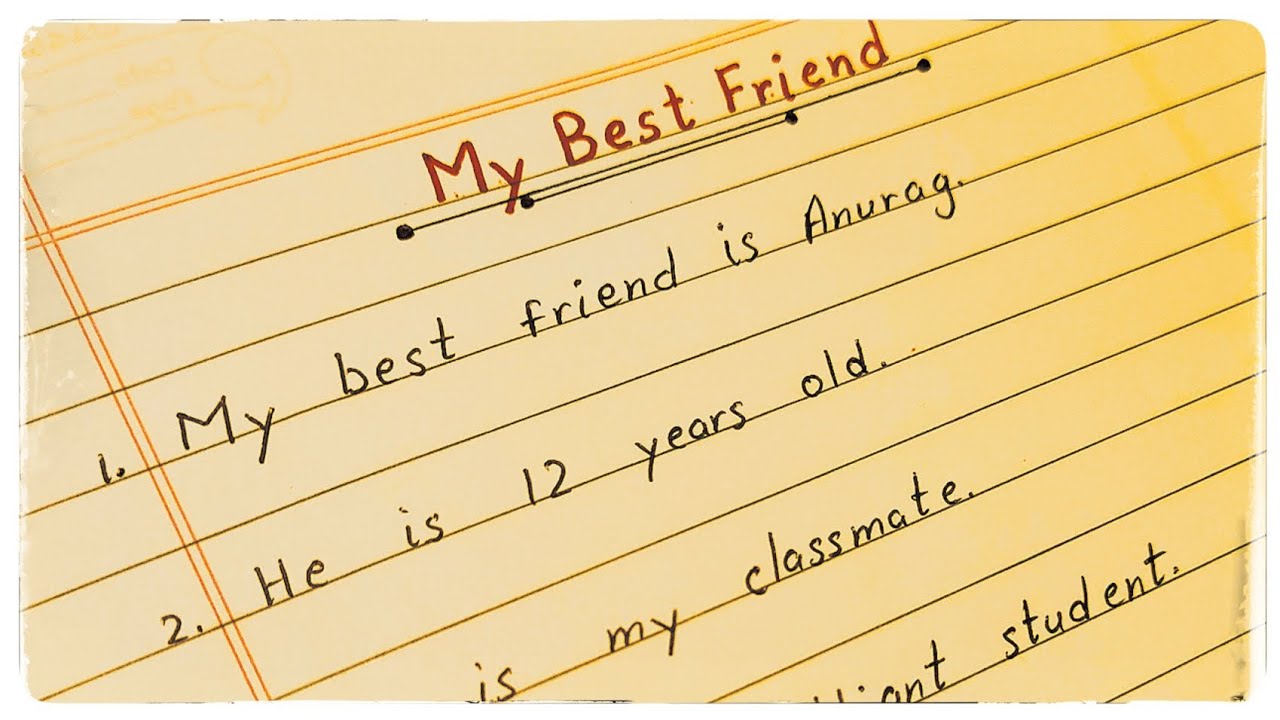 My Best Friend
1. My best friend is Anurag.
2. He is 12 years old.
is my classmate.
student.